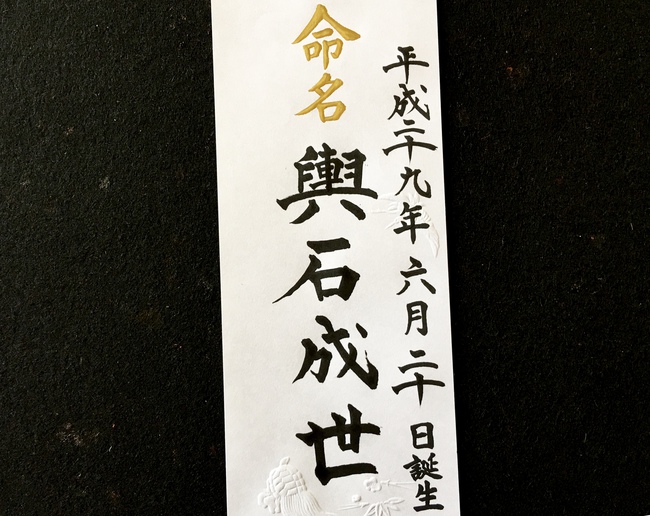 平成二十九年六月二十日誕生
命名
輿石成世